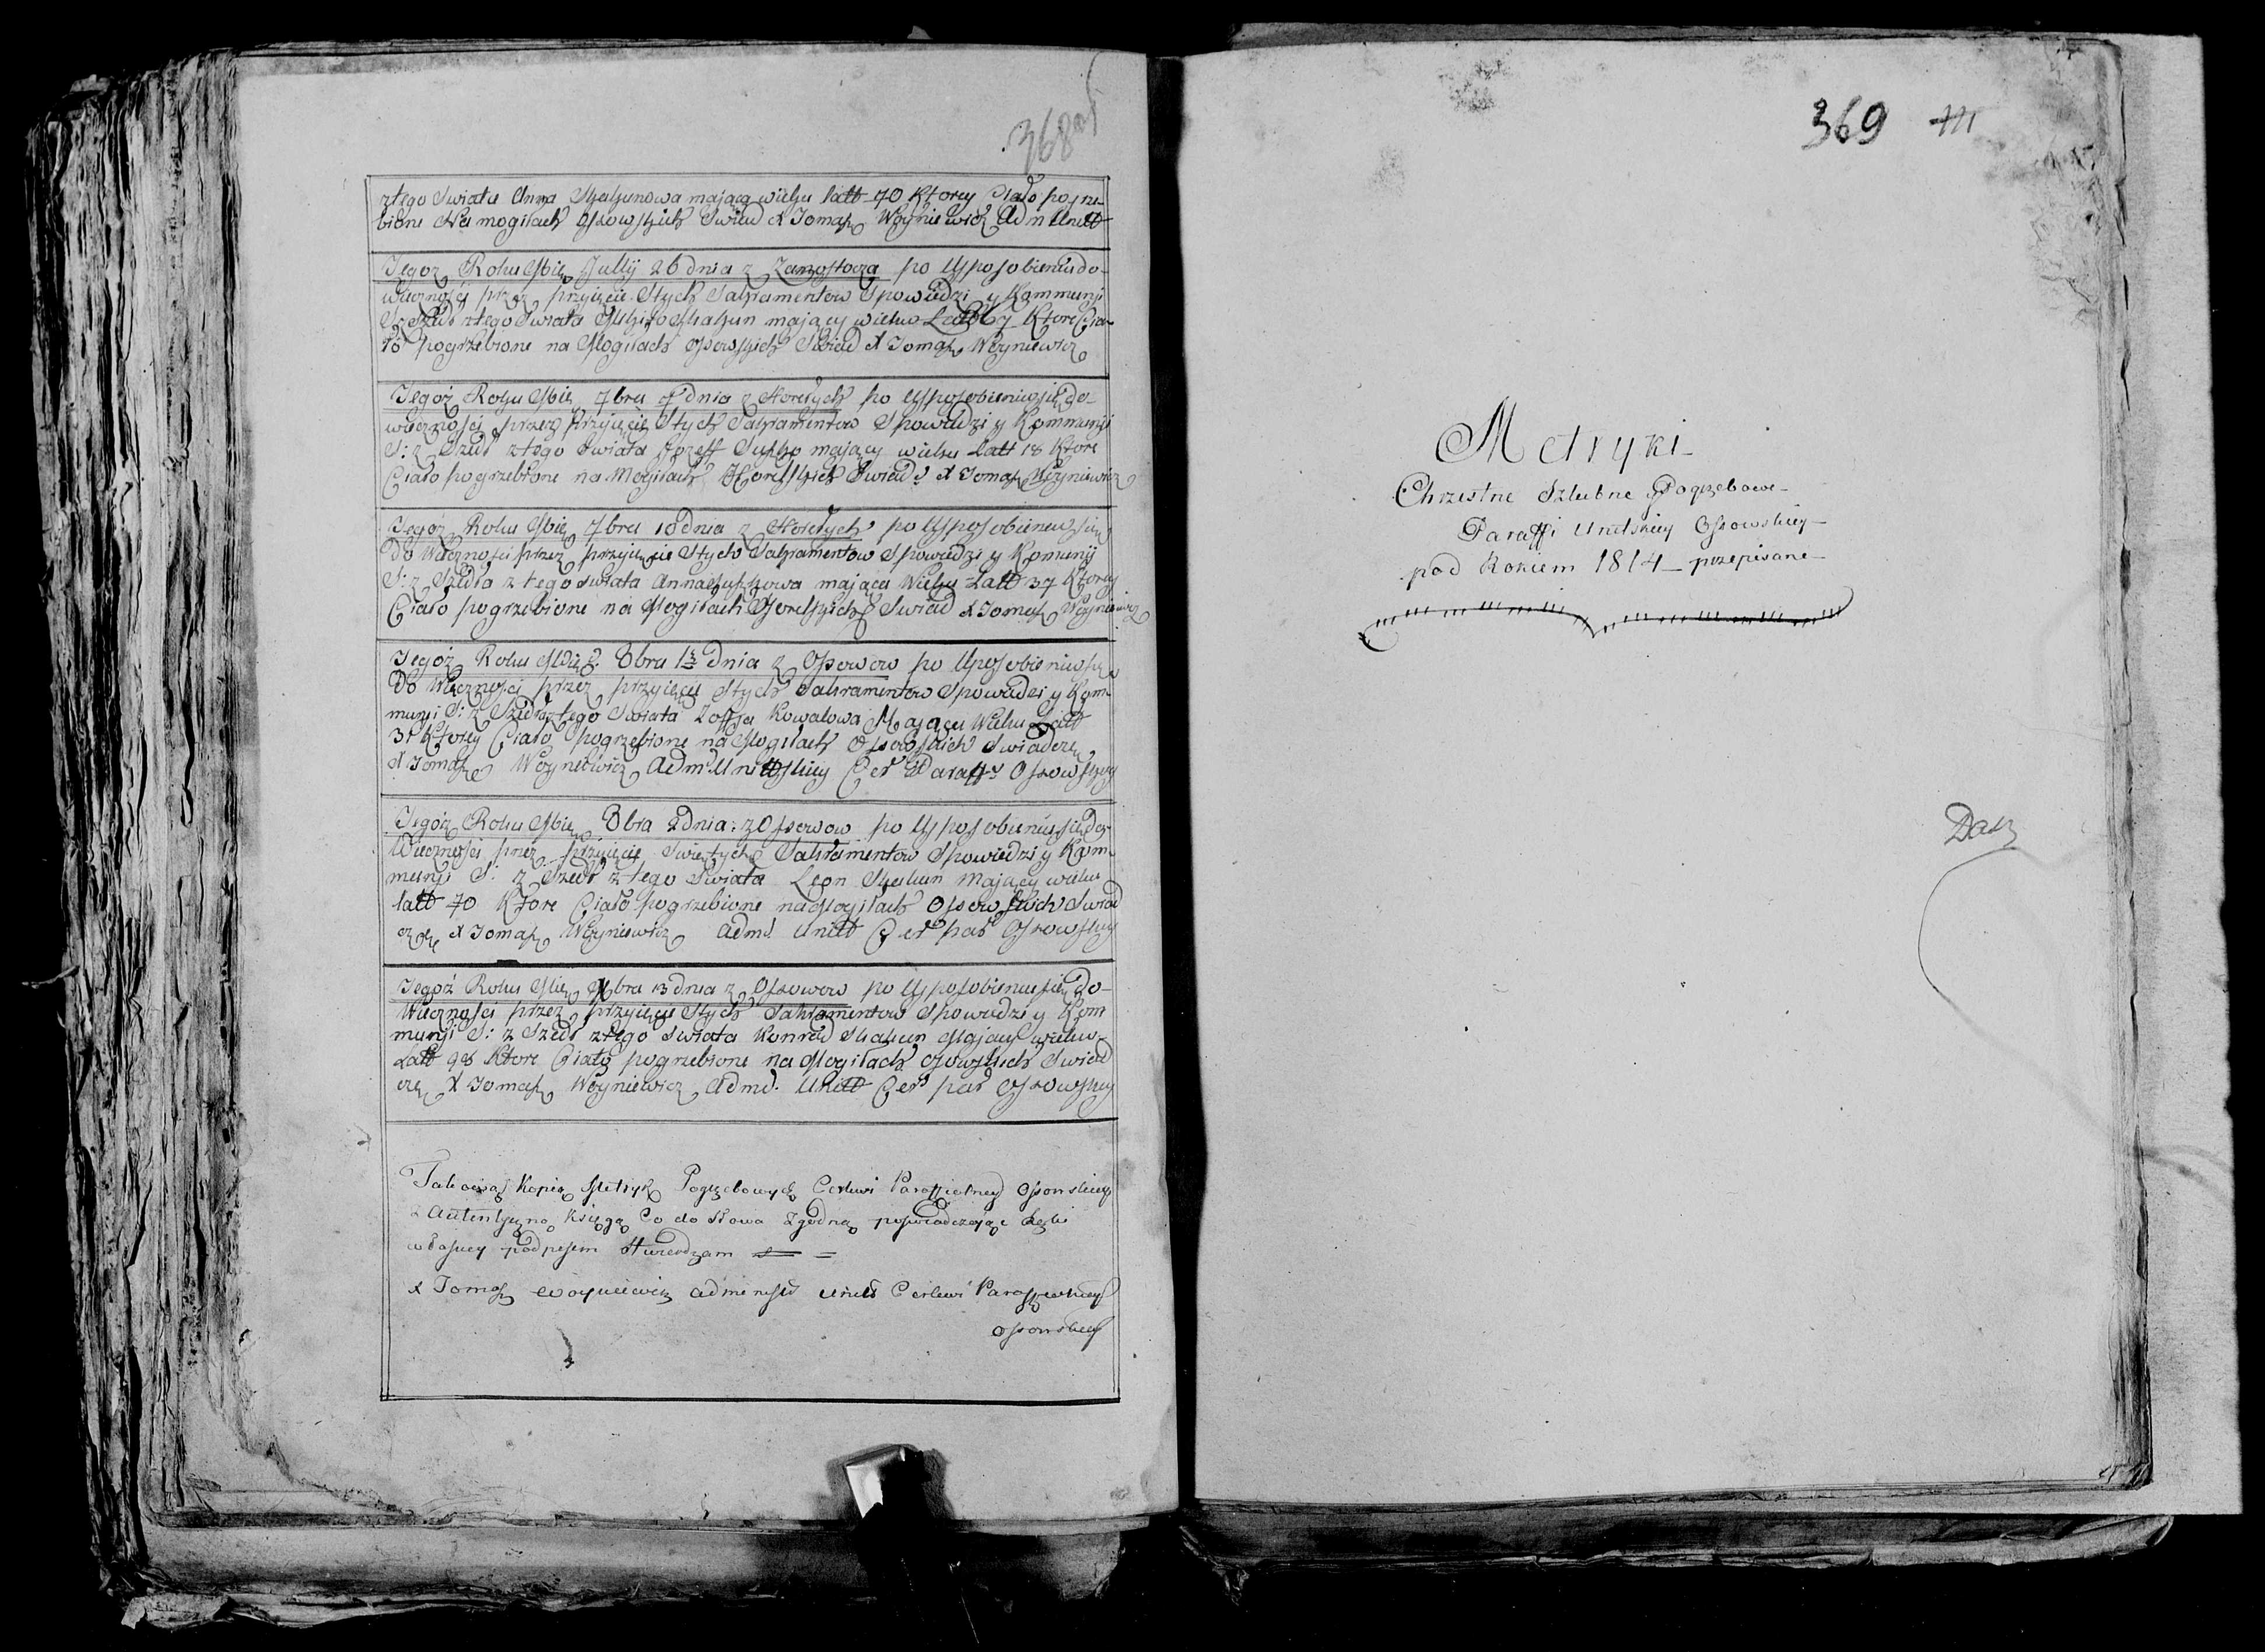 368 об
ztego Swiata Anna Skakunowa maiąca wieku latt 70 Ktorey Ciało pogrze-
bione Na mogiłach Osowskich Swiad X Tomasz Woyniewicz Adm Unitt
Tegoż Roku Mie July 26 dnia z Zamostocza po Usposobieniu do-
wiecznosci przez przyięcie Stych Sakramentow Spowiedzi y Kommunji
Szedł ztego Swiata Skakun maiący wieku Latt 67 Ktore Cia-
ło pogrzebione na Mogiłach Osowskich Swiad X Tomasz Woyniewicz
Tegoż Roku Mie 7bra 7 dnia z Horełych po Usposobieniu się do-
wiecznosci przez przyięcie Stych Sakramentow Spowiedzi y Kommunji
S: z Szedł ztego Swiata Jozeff Supko maiący wieku Latt 18 Ktore
Ciało pogrzebione na Mogiłach Horełskich Swiad X Tomasz Woyniewicz
Tegoż Roku Mie 7bra 18 dnia z Horełych po Usposobieniu się
Do Wiecznosci przez przyięcie Stych Sakramentow Spowiedzi y Komunij
S: z Szedła z tego Swiata Anna Supkowa maiąca Wieku Latt 37 Ktorey
Ciało pogrzebione na Mogiłach Horełskich Swiad X Tomasz Woyniewicz
Tegoż Roku 8bra dnia z Osowow po Uposobieniu się
Do Wiecznosci przez przyięcie Stych Sakramentow Spowiedzi y Kom-
munji S: z Szedła ztego Swiata Zoffja Kowalowa Maiąca Wieku Latt
31 Ktorey Ciało pogrzebione na Mogiłach Osowskich Swiadczę
X Tomasz Woyniewicz Adm: Unittskiey Cer Paraff Osowskiey
Tegoż Roku Mie 8bra 2 dnia: z Osowow po Usposobieniu się do-
Wiecznosci przez przyięcie Swiętych Sakramentow Spowiedzi y Kom-
munji S: z Szedł z tego Swiata Leon Skakun Maiący wieku
latt 70 Ktore Ciało pogrzebione na Mogiłach Osowskich Swiad
czę X Tomasz Woyniewicz Adm: Unitt Cer par Osowskey
Tegoż Roku Mie 9bra 13 dnia z Osowow po Usposobieniu się do-
Wiecznosci przez przyięcie Stych Sakramentow Spowiedzi y Kom
munji S: z Szedł ztego Swiata Konrad Skakun Maiący wieku-
Latt 98 Ktore Ciało pogrzebione na Mogiłach Osowskich Swiad
czę X Tomasz Woyniewicz Adm: Unitt Cer par Osowskey
Takową Kopię Metryk Pogrzebowych Cerkwi Paraffielney Osowskiey
z Autentyczną Księgą Co do słowa Zgodną poswiadczaiąc Ręki
własney podpisem stwierdzam
X Tomasz Woyniewicz Administ Unit Cerkwi Paroffiekiey
Osowskiey
369
Metryki-
Chrzestne Szlubne y Pogrzebowe-
Paraffi Unitskiey Osowskiey-
pod Rokiem 1814- przepisane-